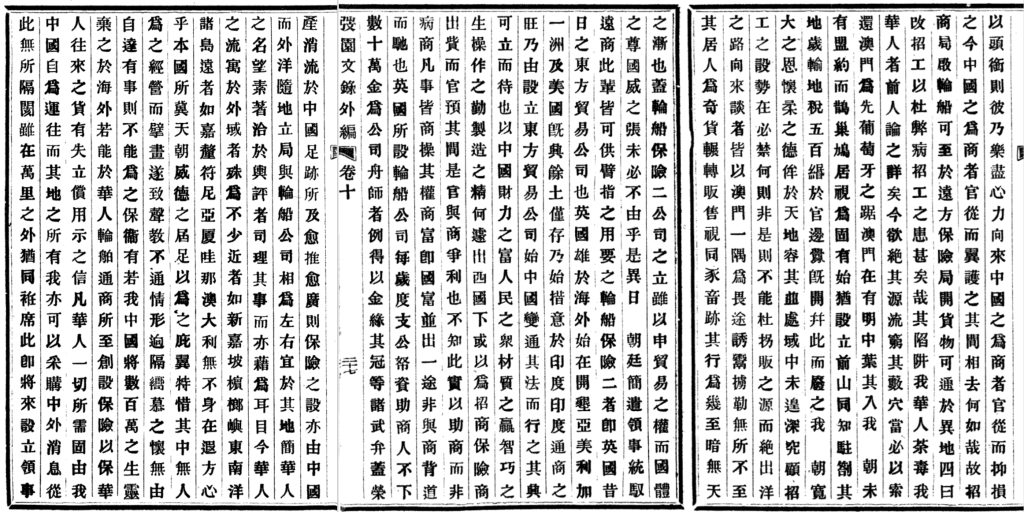 以頭銜則彼乃樂盡心力向來中國之爲商者官從而抑損
之今中國之爲商者官從而翼護之其間相去何如哉故招
商局啟輪船可至於遠方保險局開貨物可通於異地四曰
改招工以杜弊病招工之患甚矣哉其陷阱我華人荼毒我
華人者前人論之詳矣今欲絕其源流窮其藪穴當必以索
還澳門爲先葡萄牙之踞澳門在有明中葉其入我 朝未
有盟約而鵲巢鳩居視爲固有始猶設立前山同知駐劄其
地歲輸地稅五百緡於官邊釁既開幷此而廢之我 朝寬
大之恩懷柔之德侔於天地容其並處域中未遑深究顧招
工之設勢在必禁何則非是則不能杜拐販之源而絕出洋
之路向來談者皆以澳門一隅爲畏途誘鬻擄勒無所不至
其居人爲奇貨輾轉販售視同豕畜跡其行爲幾至暗無天
之漸也蓋輪船保險二公司之立雖以申貿易之權而國體
之尊國威之張未必不由乎是異日 朝廷簡遣領事統馭
遠商此輩皆可供臂指之用要之輪船保險二者即英國昔
日之東方貿易公司也英國雄於海外始在開墾亞美利加
一洲及美國旣興餘土僅存乃始措意於印度印度通商之
旺乃由設立東方貿易公司始中國變通其法而行之其興
可立而待也以中國財力之富人民之衆材質之贏智巧之
生操作之勤製造之精何遽出西國下或以爲招商保險商
出貲而官預其間是官與商爭利也不知此實以助商而非
病商凡事皆商操其權商富卽國富並出一途非與商背道
而馳也英國所設輪船公司每歲度支公帑資助商人不下
數十萬金爲公司舟師者例得以金絲其冠等諸武弁蓋榮
弢園文錄外編 卷十 二七
產消流於中國足跡所及愈推愈廣則保險之設亦由中國
而外洋隨地立局與輪船公司相爲左右宜於其地簡華人
之名望素著洽於輿評者司理其事而亦藉爲耳目今華人
之流寓於外域者殊爲不少近者如新嘉坡檳榔嶼東南洋
諸島遠者如嘉釐符尼亞厦哇那澳大利無不身在遐方心
乎本國所冀天朝威德之屆足以爲之庇翼特惜其中無人
爲之經營而擘畫遂致聲教不通情形遏隔縉慕之懷無由
自達有事則不能爲之保衞有若我中國將數百萬之生靈
棄之於海外若能於華人輪舶通商所至創設保險以保華
人往來之貨有失立償用示之信凡華人一切所需固由我
中國自爲運往而其地之所有我亦可以采購中外消息從
此無所隔閡雖在萬里之外猶同袵席此卽將來設立領事